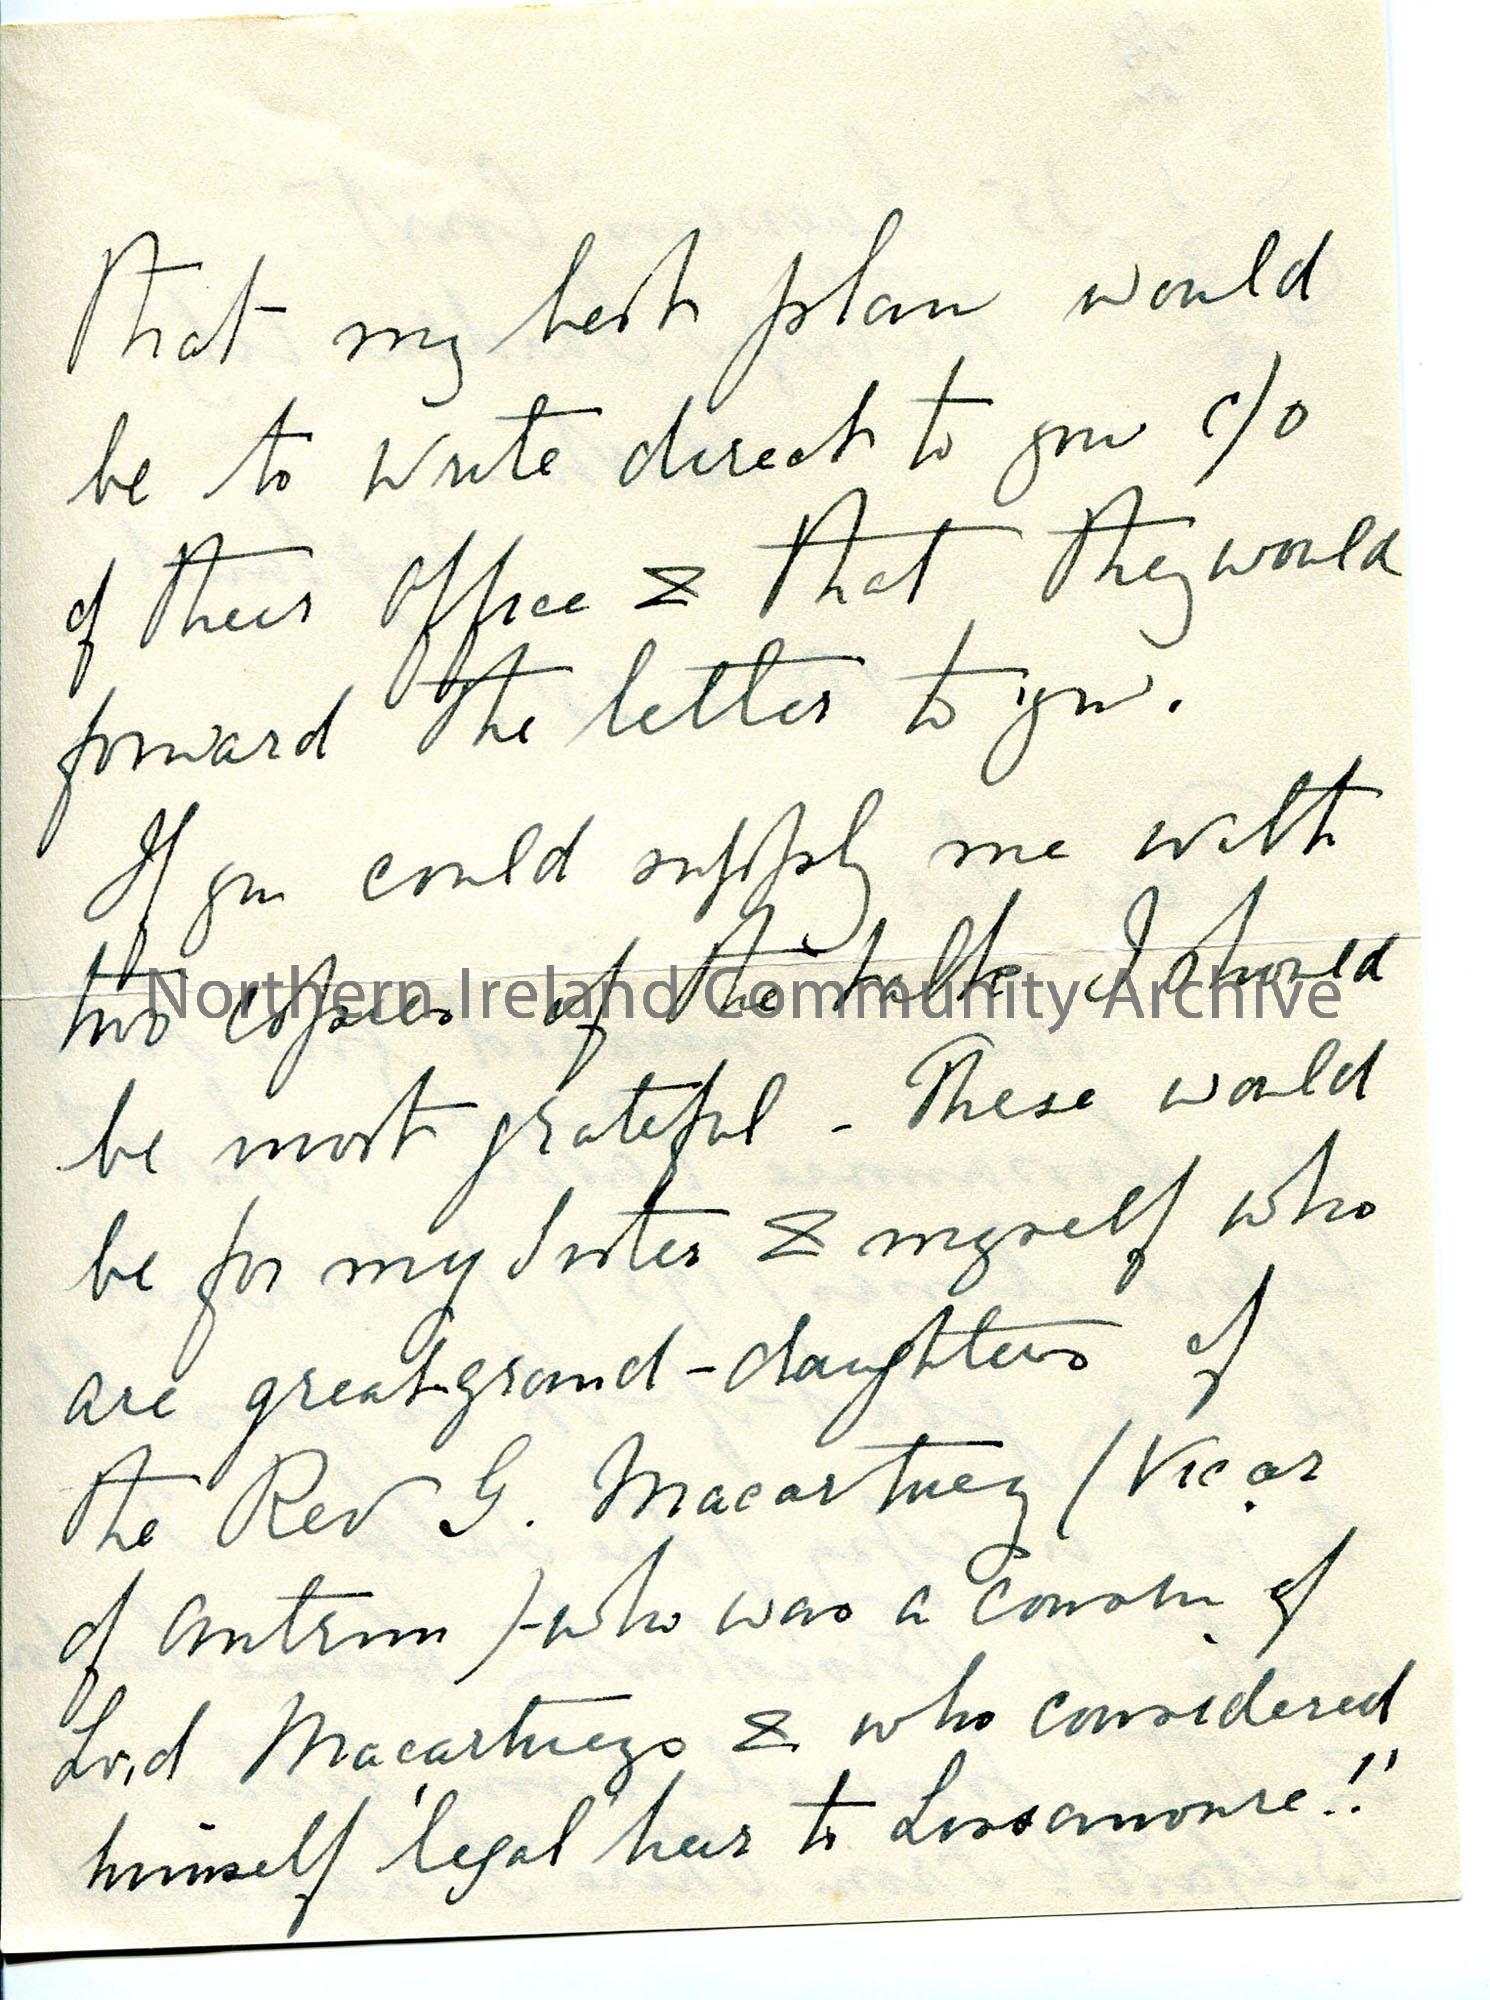 that my best plan would
be to write direct to you c/o
of their Office & that they would
forward the letter to you.
If you could supply me with
two copies of the talk I should
Northern Ireland Community Archive
be most grateful - These would
be for my Sister & myself who
are great-grand-daughters of
the Rev G. Macartney (Vicar
of Antrim) - who was a cousin of
Lord Macartneys & who considered
himself 'legal' heir to Lissanoure!!'